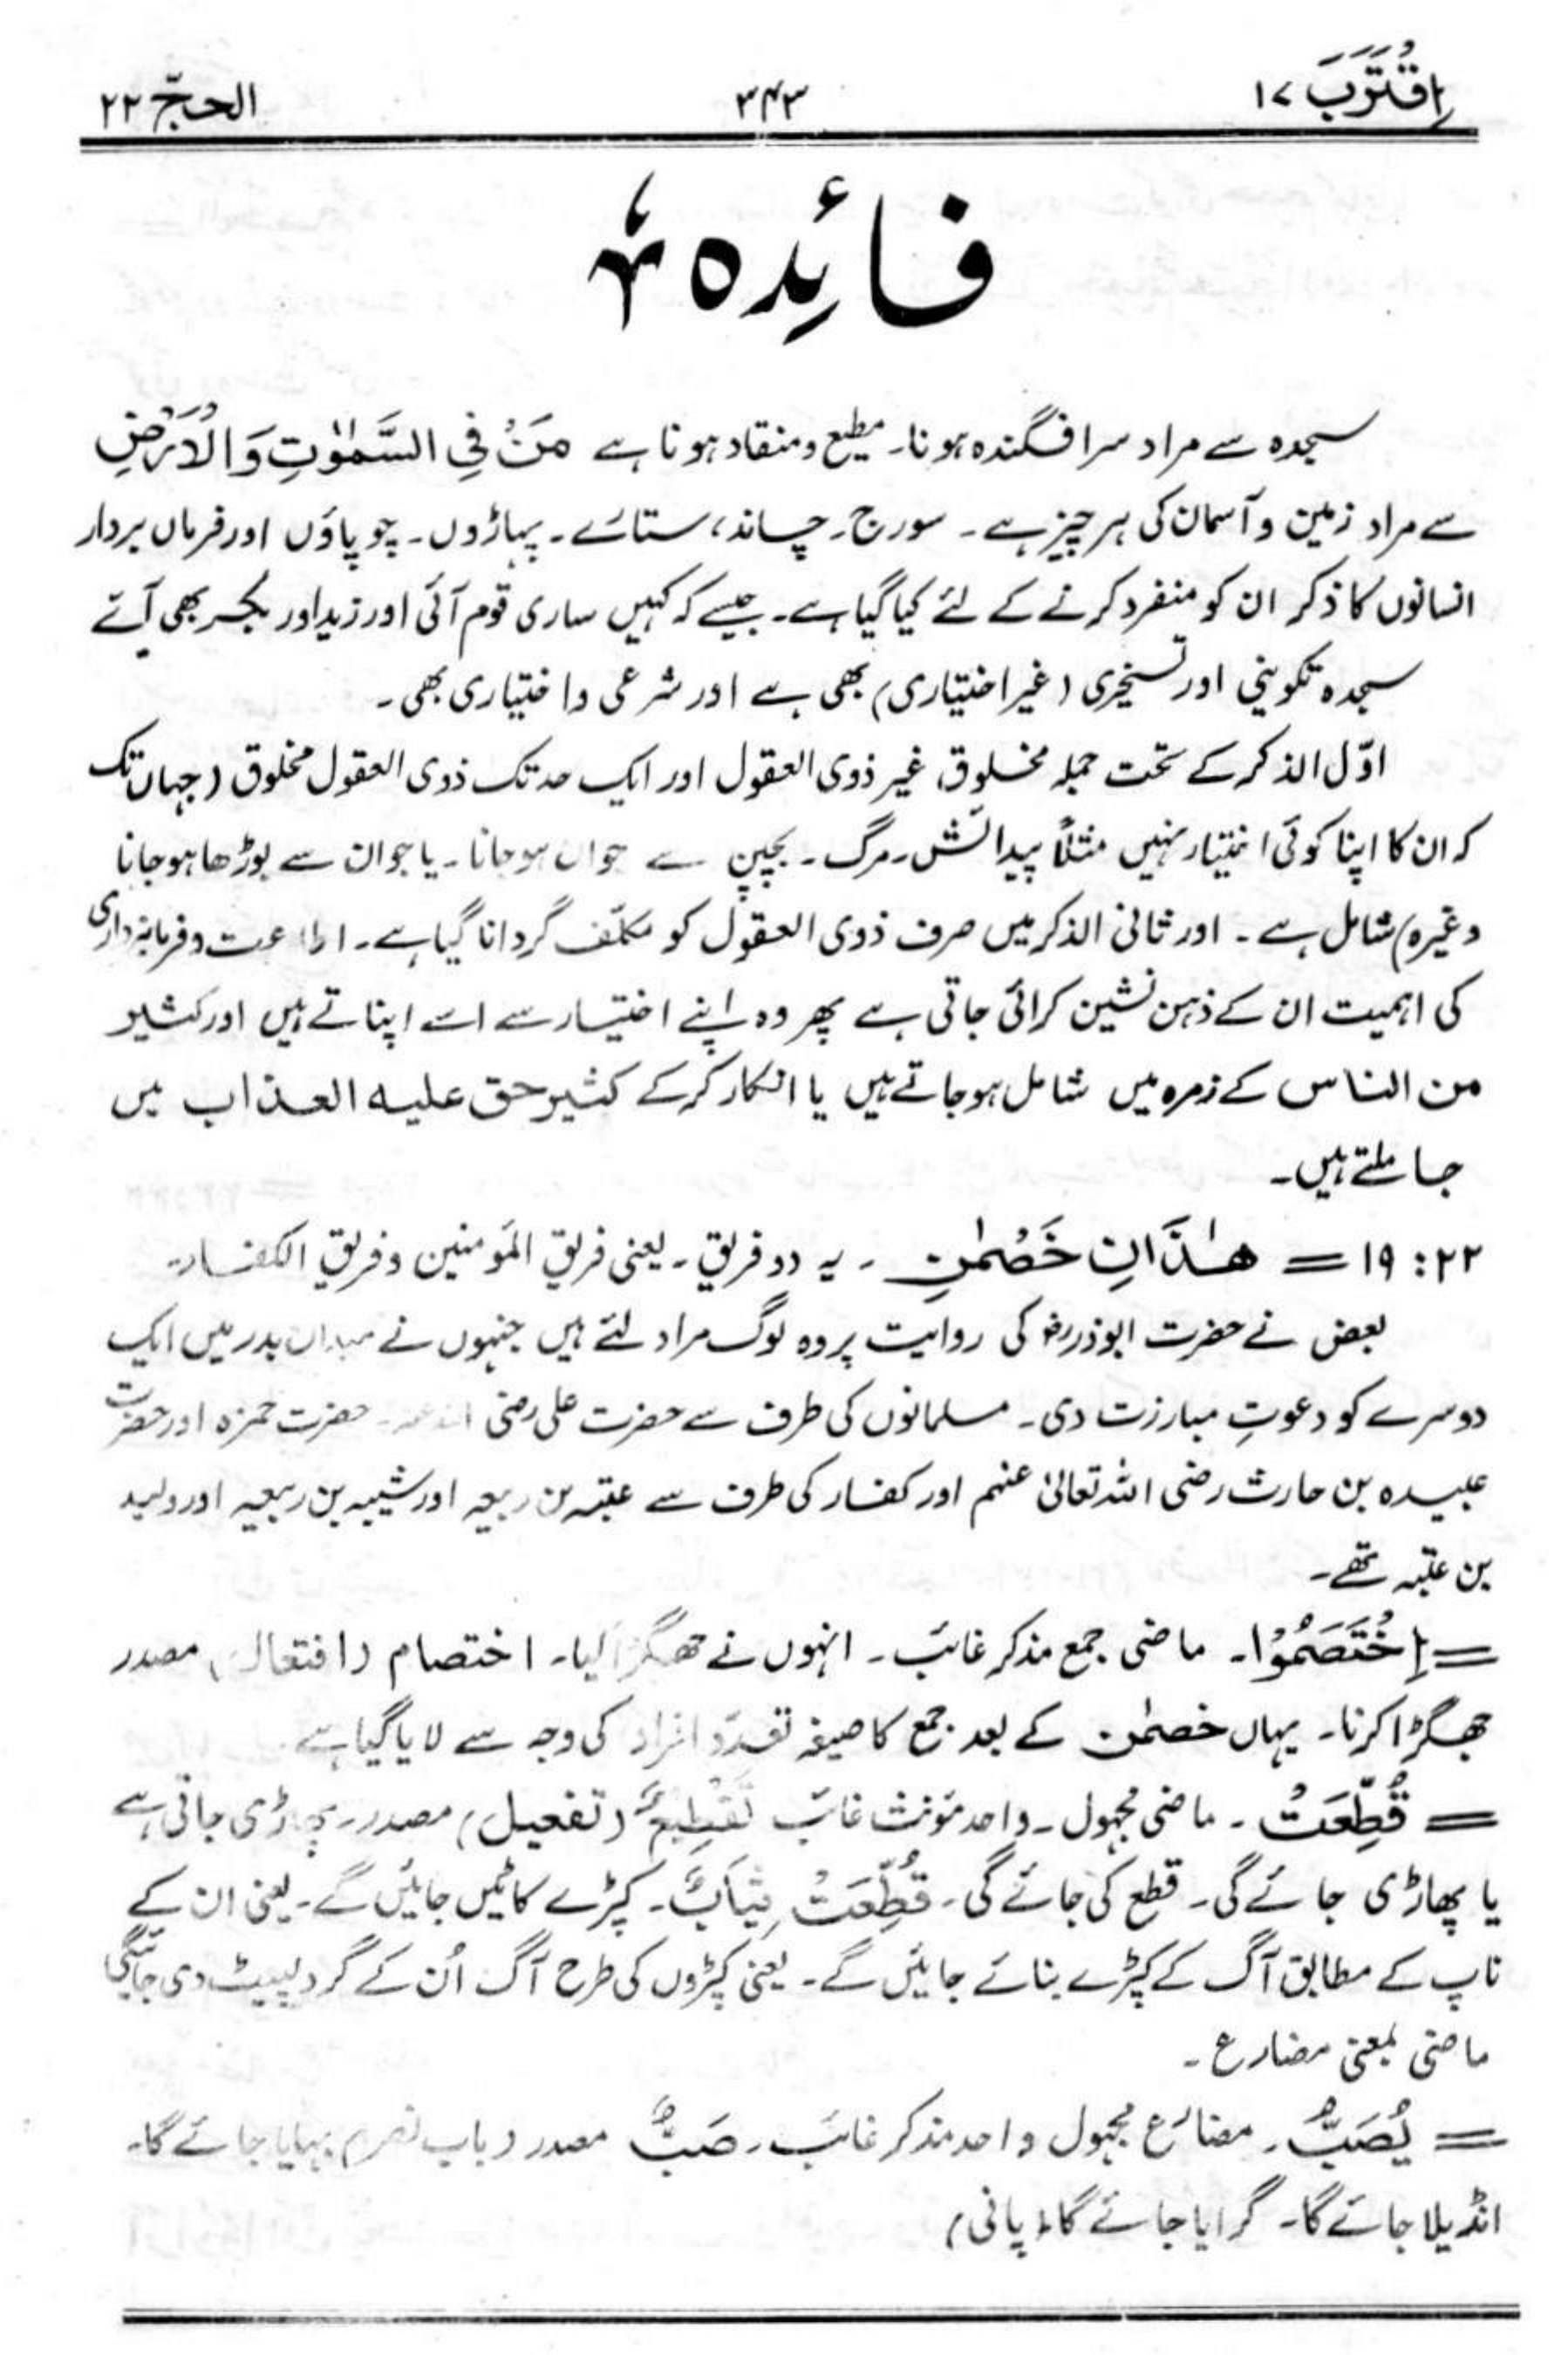 اِقْتَرَبَ ۱۷ ۳۴۳ الحجّ ۲۲
فائِدہ ۴؍
سجدہ سے مراد سرافگندہ ہونا۔ مطیع ومنقاد ہونا ہے مَنْ فِی السَّمٰوٰتِ وَالْاَرْضِ
سے مراد زمین و آسمان کی ہر چیز ہے۔ سورج۔ چاند، ستارے۔ پہاڑوں۔ چوپاؤں اور فرماں بردار
انسانوں کا ذکر ان کو منفرد کرنے کے لئے کیا گیا ہے۔ جیسے کہ کہیں ساری قوم آئی اور زید اور بکر بھی آئے
سجدہ تکوینی اور تسخیری (غیر اختیاری) بھی ہے اور شرعی و اختیاری بھی۔
اوّل الذکر کے تحت جملہ مخلوق، غیر ذوی العقول اور ایک حد تک ذوی العقول مخلوق (جہاں تک
کہ ان کا اپنا کوئی اختیار نہیں مثلاً پیدائش۔ مرگ۔ بچپن سے جواں ہو جانا۔ یا جوان سے بوڑھا ہو جانا
وغیرہ) شامل ہے۔ اور ثانی الذکر میں صرف ذوی العقول کو مکلّف گردانا گیا ہے۔ اطاعت و فرمانبرداری
کی اہمیت ان کے ذہن نشین کرائی جاتی ہے پھر وہ اپنے اختیار سے اسے اپناتے ہیں اور کثیر
من الناس کے زمرہ میں شامل ہو جاتے ہیں یا انکار کرکے کثیر حق علیہ العذاب میں
جا ملتے ہیں۔
۲۲ : ۱۹ = ھٰذَانِ خَصْمٰنِ ۔ یہ دو فریق۔ یعنی فریق المؤمنین و فریق الکفار۔
بعض نے حضرت ابوذررضؓ کی روایت پر وہ لوگ مراد لئے ہیں جنہوں نے میدان بدر میں ایک
دوسرے کو دعوتِ مبارزت دی۔ مسلمانوں کی طرف سے حضرت علی رضی اللہ عنہ۔ حضرت حمزہ اور حضرت
عبیدہ بن حارث رضی اللہ تعالیٰ عنہم اور کفار کی طرف سے عتبہ بن ربیعہ اور شیبہ بن ربیعہ اور ولید
بن عتبہ تھے۔
= اِخْتَصَمُوْا۔ ماضی جمع مذکر غائب۔ انہوں نے جھگڑا کیا۔ اختصام (افتعال) مصدر
جھگڑا کرنا۔ یہاں خصمٰن کے بعد جمع کا صیغہ تعدّدِ افراد کی وجہ سے لایا گیا ہے
= قُطِّعَتْ ۔ ماضی مجہول۔ واحد مؤنث غائب تَقْطِیْعٌ (تفعیل) مصدر۔ پھاڑی جاتی ہے
یا پھاڑی جائے گی۔ قطع کی جائے گی۔ قُطِّعَتْ ثِیَابٌ۔ کپڑے کاٹیں جائیں گے۔ یعنی ان کے
ناپ کے مطابق آگ کے کپڑے بنائے جائیں گے۔ یعنی کپڑوں کی طرح آگ اُن کے گرد لپیٹ دی جائیگی
ماضی بمعنی مضارع ۔
= یُصَبُّ ۔ مضارع مجہول واحد مذکر غائب۔ صَبٌّ مصدر (باب نصر) بہایا جائے گا۔
انڈیلا جائے گا۔ گرایا جائے گا (پانی)